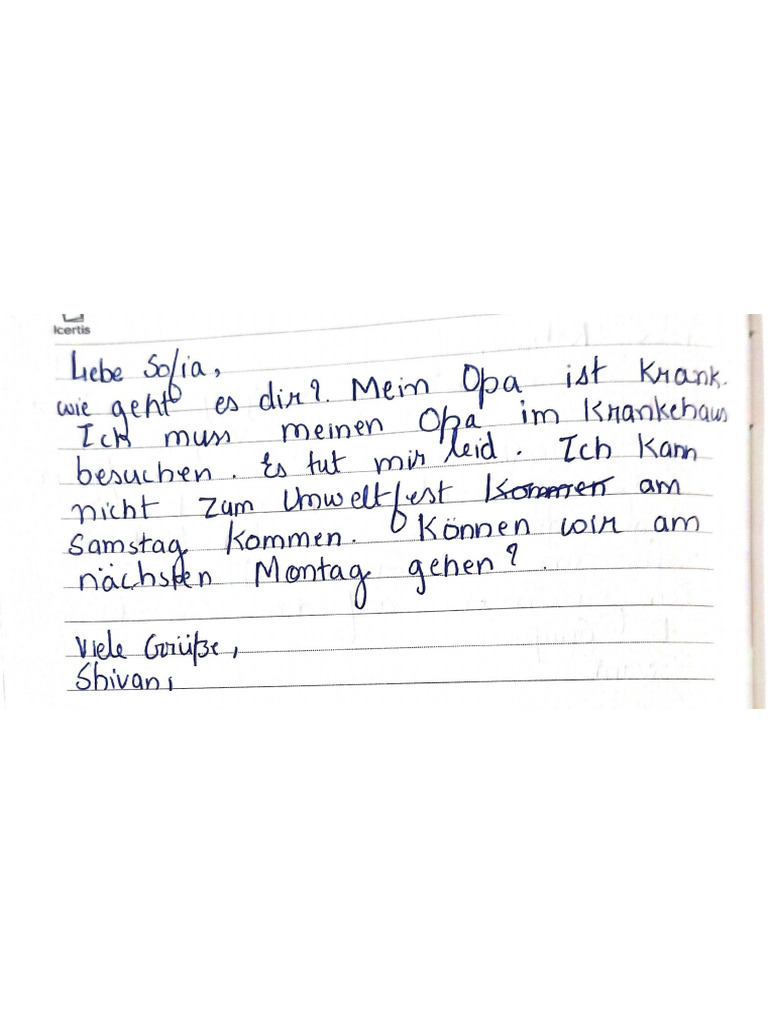 Icertis
Liebe Sofia,
wie geht es dir? Mein Opa ist Krank.
Ich muss meinen Opa im Krankehaus
besuchen. Es tut mir leid. Ich kann
nicht zum Umweltfest kommen am
Samstag kommen. Können wir am
nächsten Montag gehen?
Viele Grüße,
Shivani